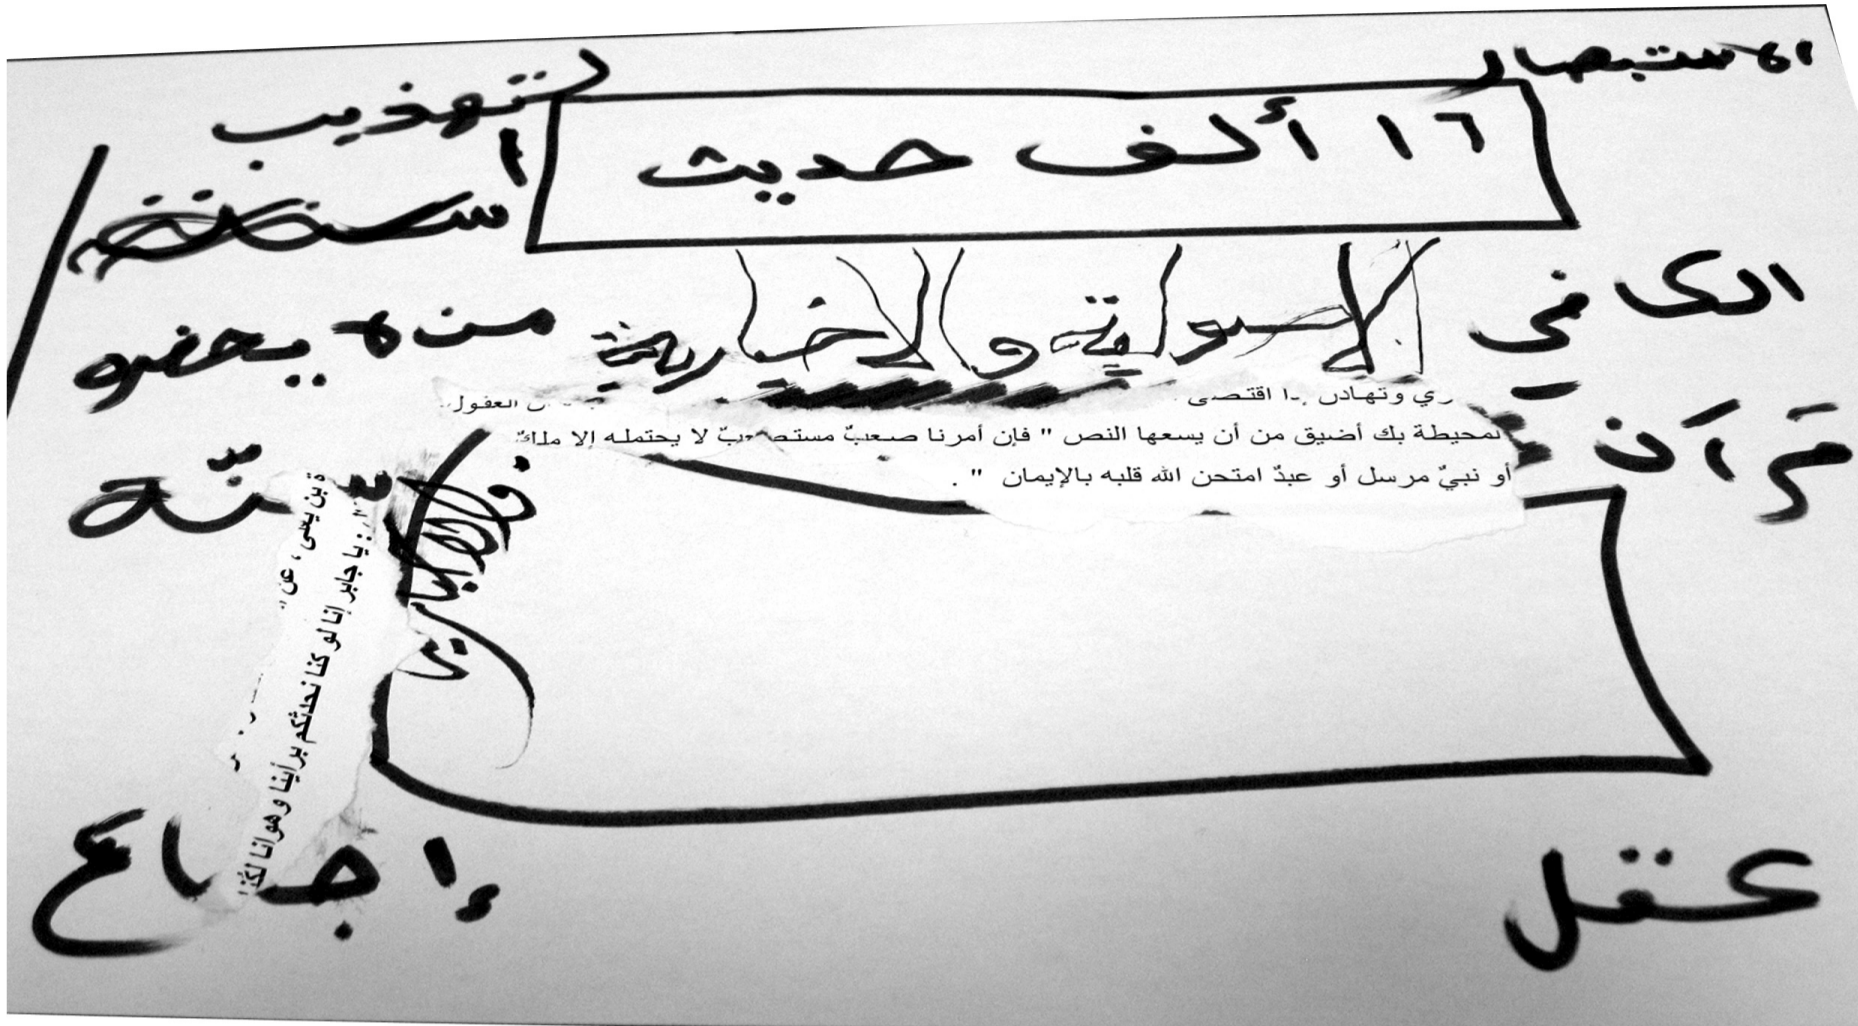 الاستبصار
١٦ ألف حديث
تهذيب
الكافي
الاصولية والاخبارية
من لا يحضره
ري وتهادن إذا اقتضى
لمحيطة بك أضيق من أن يسعها النص " فإن أمرنا صعبٌ مستصعبٌ لا يحتمله إلا ملكٌ
أو نبيٌ مرسل أو عبدٌ امتحن الله قلبه بالإيمان " .
قرآن
سنّة
ة بن يعلى ، عن
: يا جابر إنا لو كنا نحدثكم برأينا وهوانا لكنا
عقل
إجماع